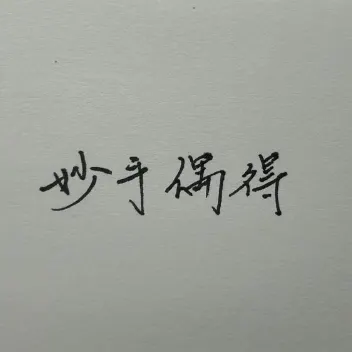 妙手偶得